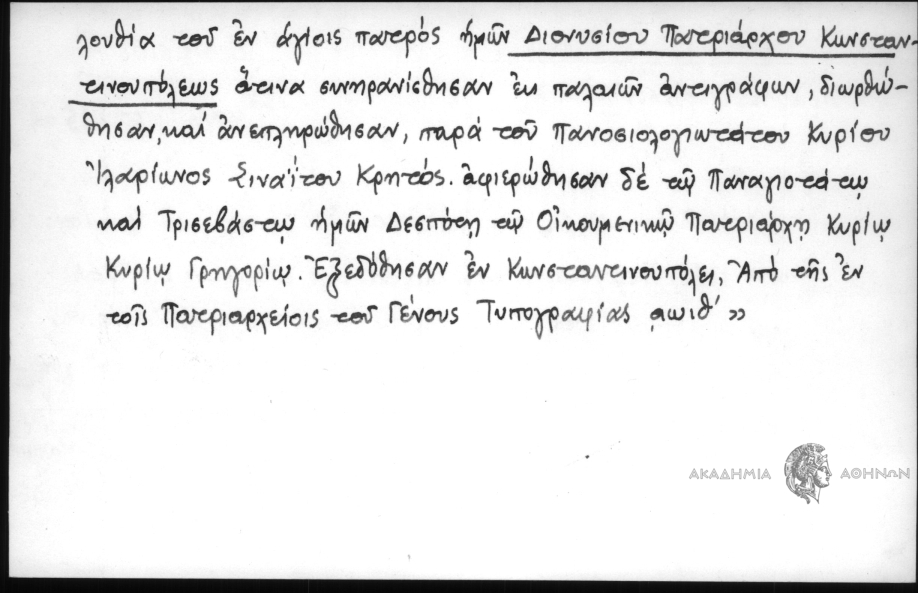 λουθία τοῦ ἐν ἁγίοις πατρός ἡμῶν Διονυσίου Πατριάρχου Κωνσταν-
τινουπόλεως ἅτινα συνηρανίσθησαν ἐκ παλαιῶν ἀντιγράφων, διωρθώ-
θησαν, καί ἀνεπληρώθησαν, παρά τοῦ Πανοσιολογιωτάτου Κυρίου
Ἱλαρίωνος Σιναΐτου Κρητός. ἀφιερώθησαν δέ τῷ Παναγιοτάτῳ
καί Τρισεβάστῳ ἡμῶν Δεσπότῃ τῷ Οἰκουμενικῷ Πατριάρχῃ Κυρίῳ
Κυρίῳ Γρηγορίῳ. Ἐξεδόθησαν ἐν Κωνσταντινουπόλει, Ἀπό τῆς ἐν
τοῖς Πατριαρχείοις τοῦ Γένους Τυπογραφίας ͵αωιθ' »
ΑΚΑΔΗΜΙΑ ΑΘΗΝΩΝ